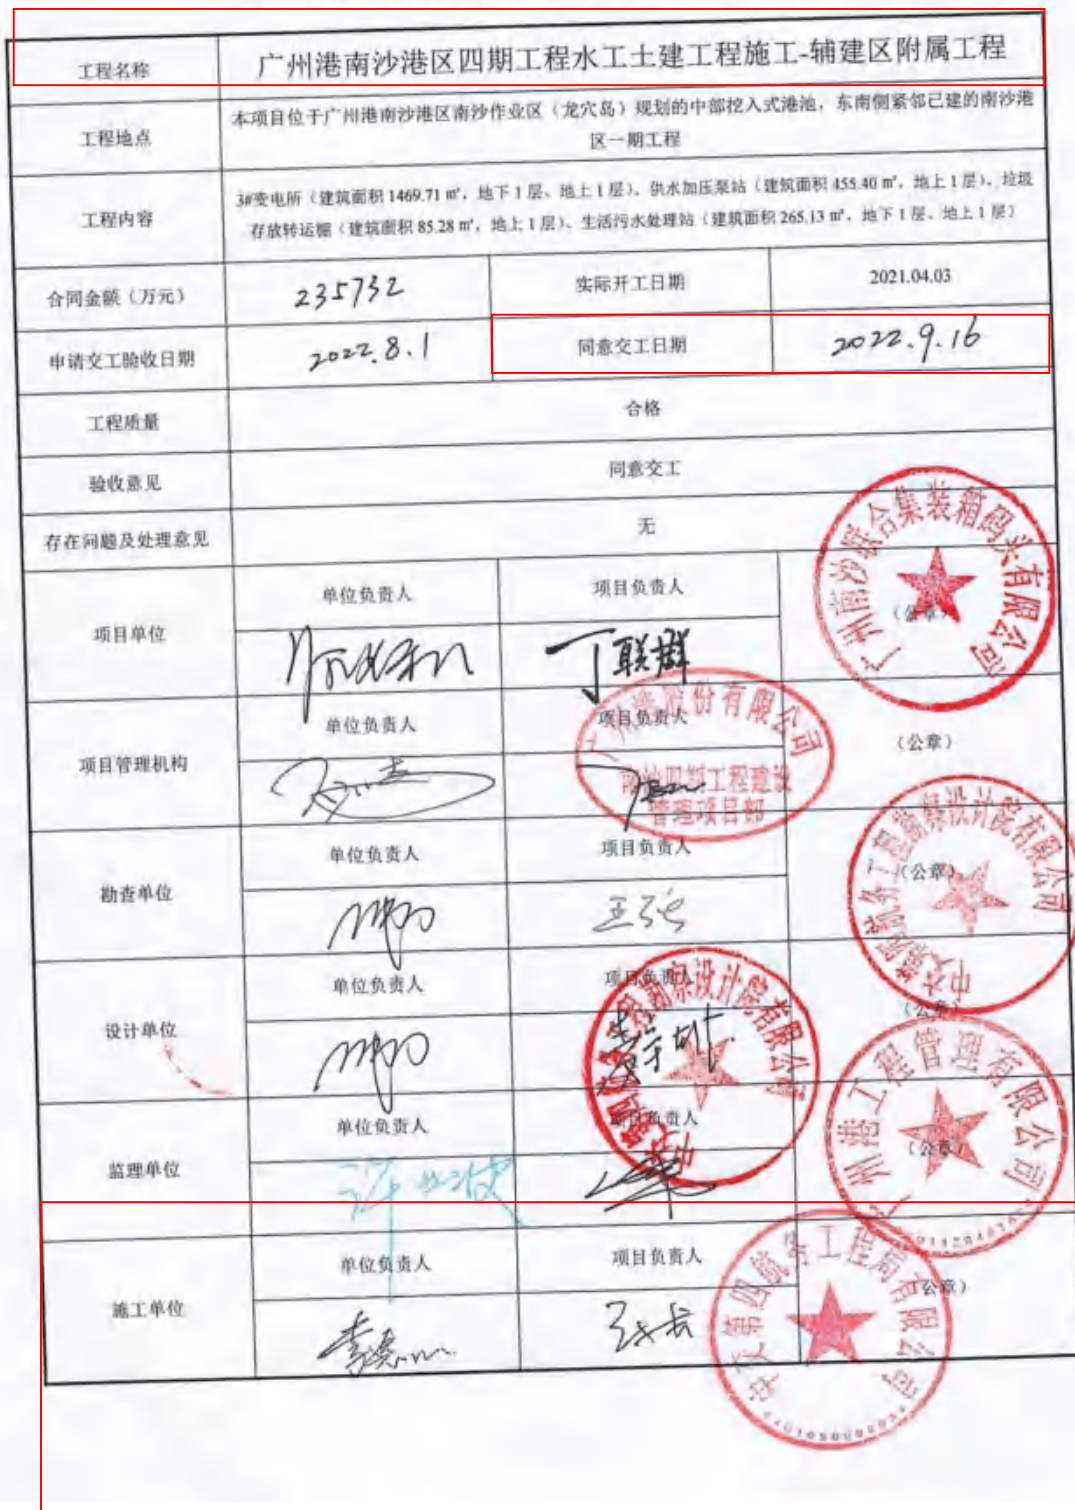 工程名称
广州港南沙港区四期工程水工土建工程施工-辅建区附属工程
工程地点
本项目位于广州港南沙港区南沙作业区（龙穴岛）规划的中部挖入式港池，东南侧紧邻已建的南沙港
区一期工程
工程内容
3#变电所（建筑面积 1469.71 ㎡，地下 1 层、地上 1 层）、供水加压泵站（建筑面积 455.40 ㎡，地上 1 层）、垃圾
存放转运棚（建筑面积 85.28 ㎡，地上 1 层）、生活污水处理站（建筑面积 265.13 ㎡，地下 1 层、地上 1 层）
合同金额（万元）
235732
实际开工日期
2021.04.03
申请交工验收日期
2022.8.1
同意交工日期
2022.9.16
工程质量
合格
验收意见
同意交工
存在问题及处理意见
无
项目单位
单位负责人
项目负责人
丁联群
（公章）
广州南沙联合集装箱码头有限公司
项目管理机构
单位负责人
项目负责人
（公章）
广州港股份有限公司
南沙四期工程建设
管理项目部
勘查单位
单位负责人
项目负责人
（公章）
设计单位
单位负责人
项目负责人
（公章）
监理单位
单位负责人
项目负责人
（公章）
广州港工程管理有限公司
施工单位
单位负责人
项目负责人
（公章）
中交第四航务工程局有限公司